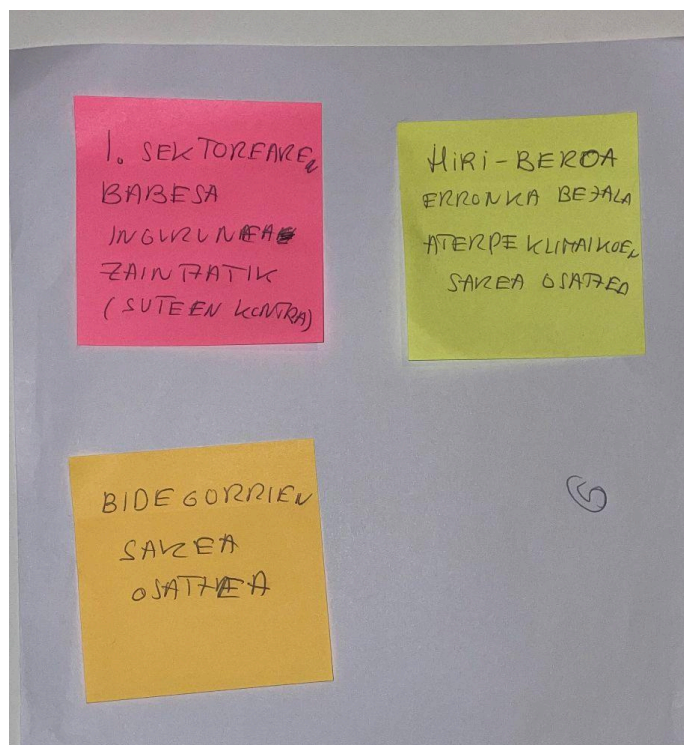 1. SEKTOREAREN
BABESA
INGURUNEA
ZAINTZATIK
(SUTEEN KONTRA)
HIRI-BEROA
ERRONKA BEZALA
ATERPE KLIMAIKOEN
SAREA OSATZEA
BIDEGORRIEN
SAREA
OSATZEA